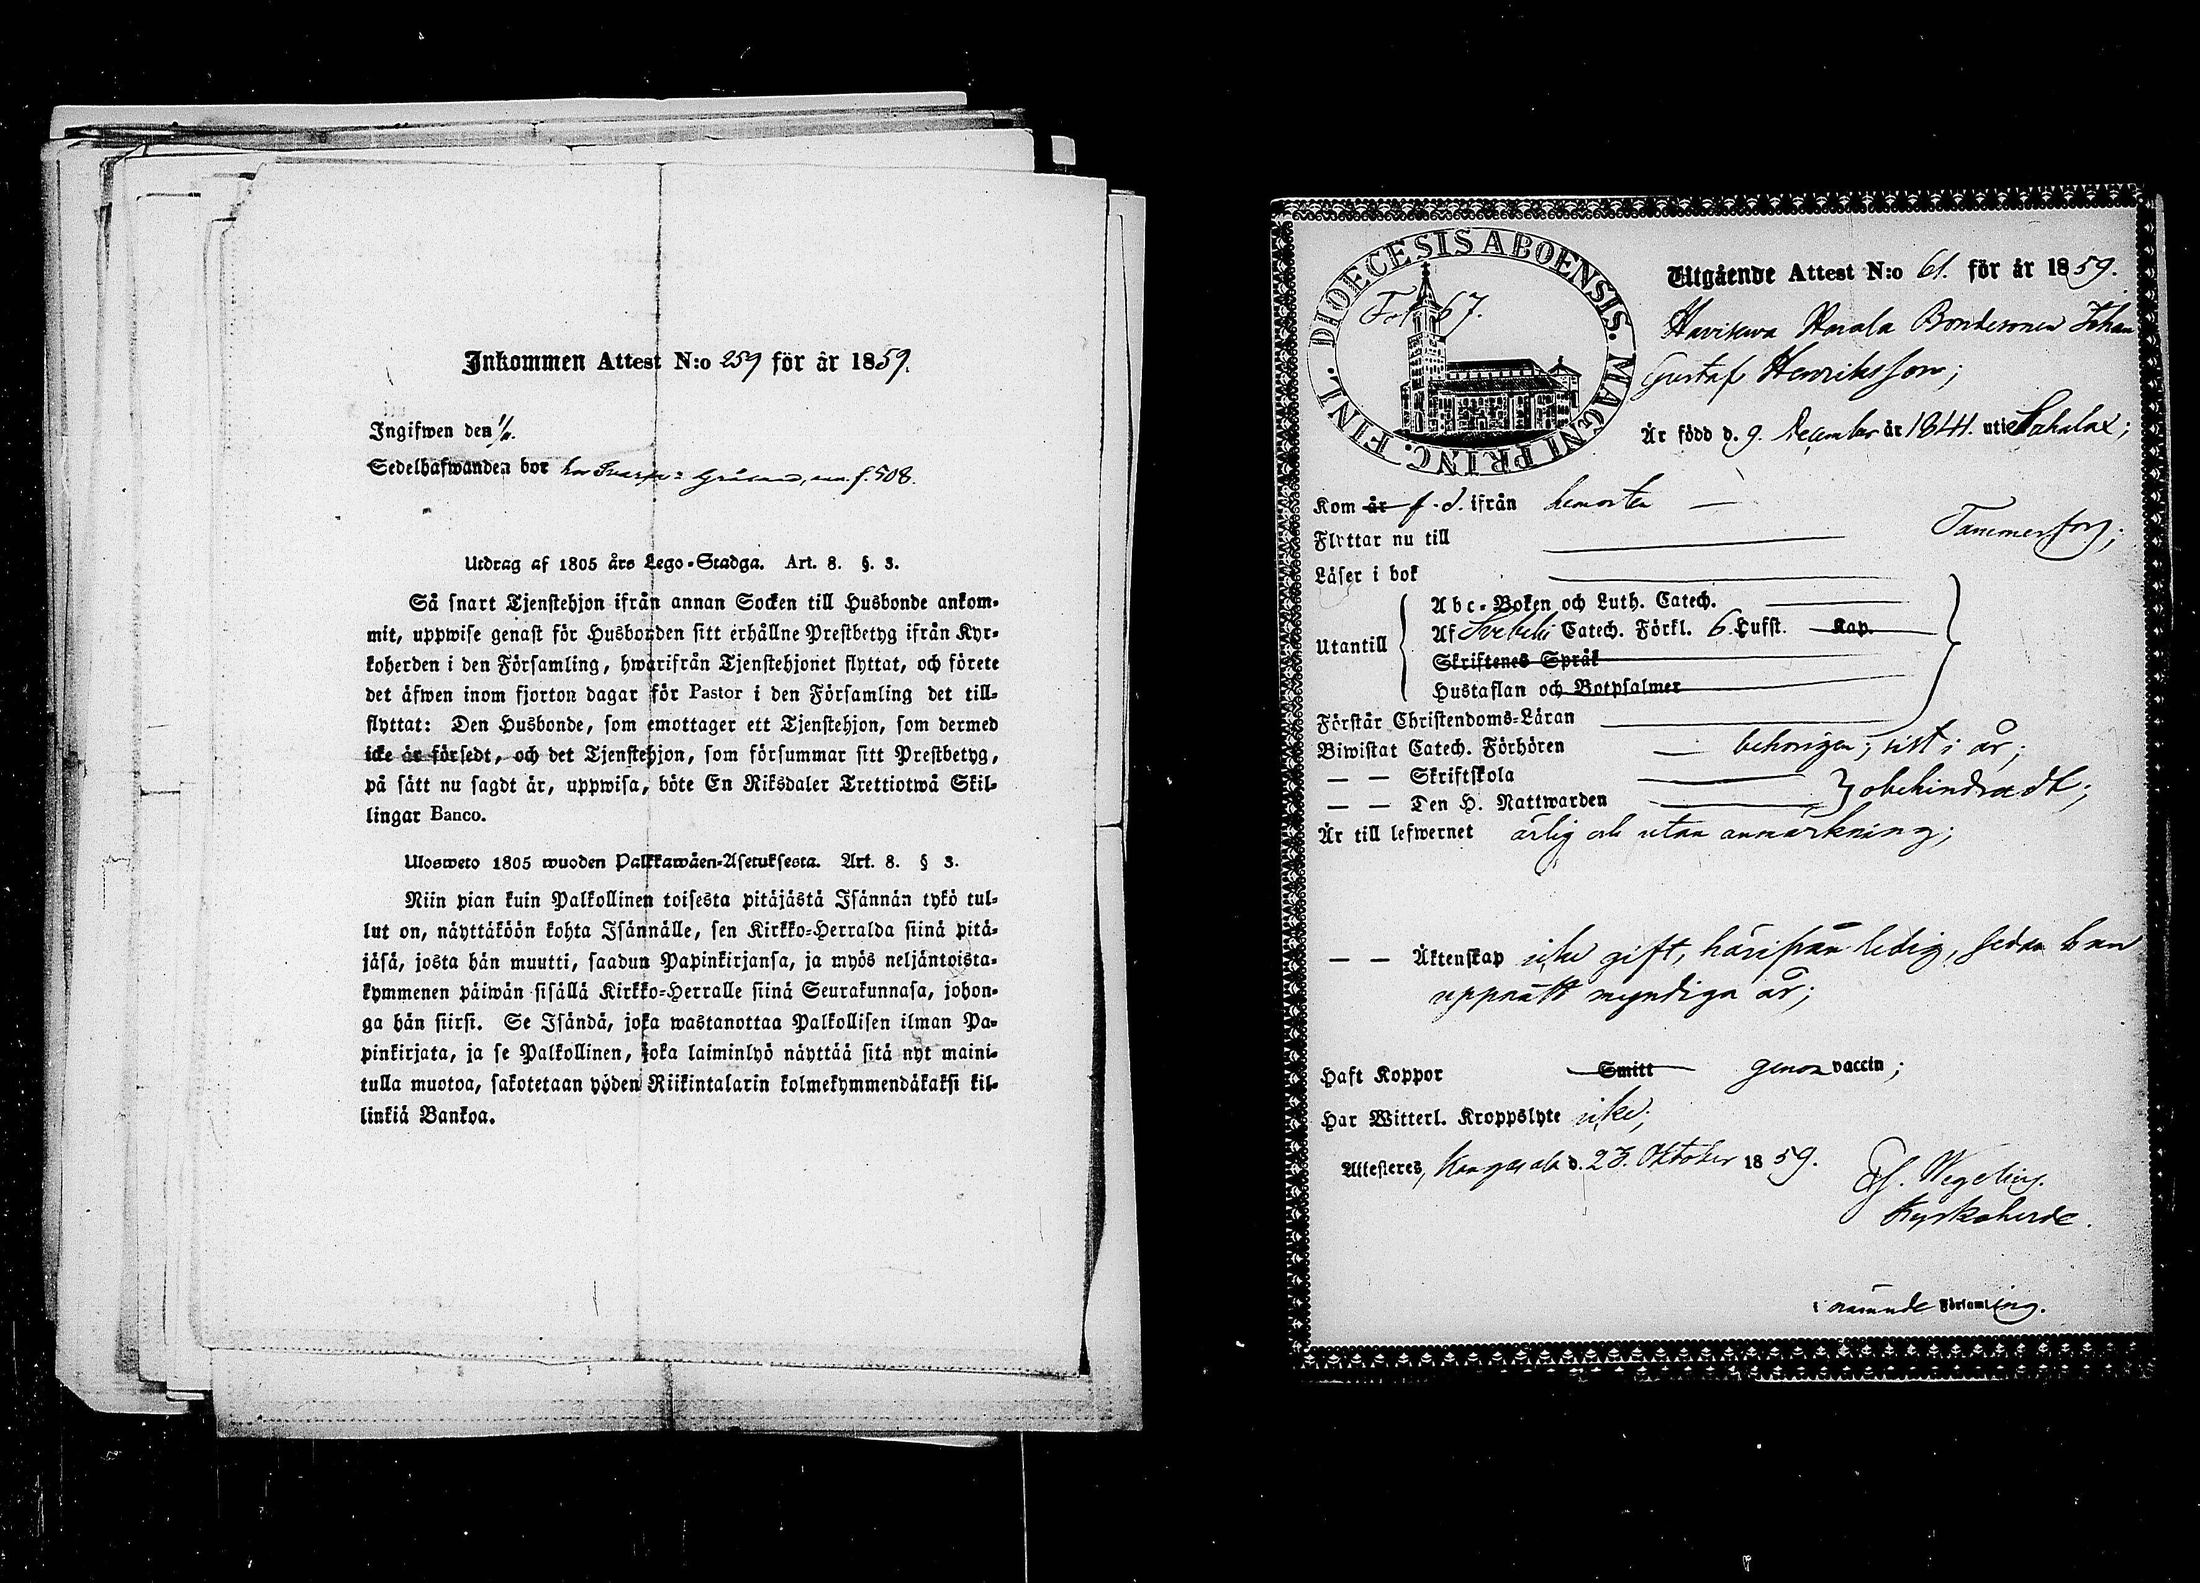 Inkommen Attest N:o 259 för år 1859.
Ingifwen den 1/11.
Sedelhafwanden bor hos f. 508.
Utdrag af 1805 års Lego-Stadga. Art. 8. §. 3.
Så snart Tjenstehjon ifrån annan Socken till Husbonde ankom-
mit, uppwise genast för Husbonden sitt erhållne Prestbetyg ifrån Kyr-
koherden i den Församling, hwarifrån Tjenstehjonet flyttat, och förete
det äfwen inom fjorton dagar för Pastor i den Församling det till-
flyttat: Den Husbonde, som emottager ett Tjenstehjon, som dermed
icke är försedt, och det Tjenstehjon, som försummar sitt Prestbetyg,
på sätt nu sagdt är, uppwisa, böte En Riksdaler Trettiotwå Skil-
lingar Banco.
Ulosweto 1805 wuoden Palkkawäen-Asetuksesta. Art. 8. § 3.
Niin pian kuin Palkollinen toisesta pitäjästä Isännän tykö tul-
lut on, näyttäköön kohta Isännälle, sen Kirkko-Herralda siinä pitä-
jäsä, josta hän muutti, saadun Papinkirjansa, ja myös neljäntoista-
kymmenen päiwän sisällä Kirkko-Herralle siinä Seurakunnasa, johon-
ga hän siirsi. Se Isändä, joka wastanottaa Palkollisen ilman Pa-
pinkirjata, ja se Palkollinen, joka laiminlyö näyttää sitä nyt maini-
tulla muotoa, sakotetaan yhden Riikintalarin kolmekymmendäkaksi kil-
linkiä Bankoa.
DIOECESIS ABOENSIS. MAGNI PRINC. FINL.
Fol. 67.
Utgående Attest N:o 61. för år 1859.
Havisewa Harala Bondesonen Johan
Gustaf Henriksson;
Är född d. 9. December år 1841. uti Sahalax;
Kom år f. d. ifrån hemorten —
Flyttar nu till Tammerfors;
Läser i bok
Utantill
Abc-Boken och Luth. Catech.
Af Svebelii Catech. Förkl. 6. Hufst. Kap.
Skriftenes Språk
Hustaflan och Botpsalmer
Förstår Christendoms-Läran
Biwistat Catech. Förhören — behörigen; sist i år;
— — Skriftskola
— — Den H. Nattwarden } obehindradt;
Är till lefwernet ärlig och utan anmärkning;
— — Äktenskap icke gift, härifrån ledig, sedan han
uppnått myndiga år;
Haft Koppor Smitt genom vaccin;
Har Witterl. Kroppslyte icke;
Attesteres, Kangasala d. 23. Oktober 1859.
Wegelius.
Kyrkoherde.
i nämnde Församling.